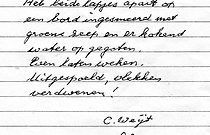 Het beide lapjes apart op
een bord ingesmeerd met
groene zeep en er kokend
water op gegoten.
Even laten weken.
Uitgespoeld, vlekken
verdwenen!
C. Weijt